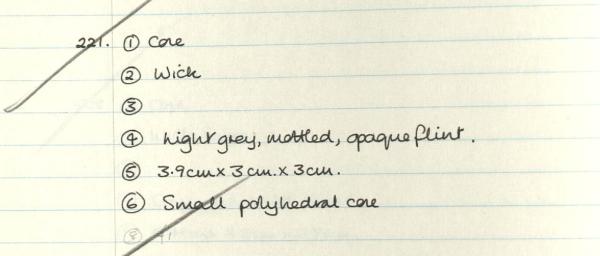 221. ① Core
② Wick
③
④ Light grey, mottled, opaque flint.
⑤ 3.9cm x 3cm. x 3cm.
⑥ Small polyhedral core